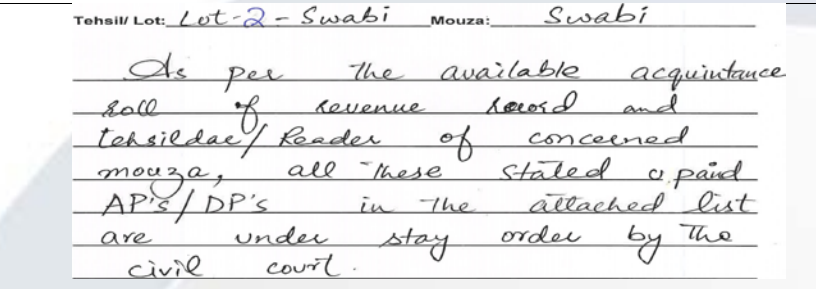 Tehsil/ Lot: Lot-2 - Swabi Mouza: Swabi
As per the available acquintance
roll of revenue record and
tehsildar/Reader of concerned
mouza, all these stated paid
AP's/DP's in the attached list
are under stay order by the
civil court.